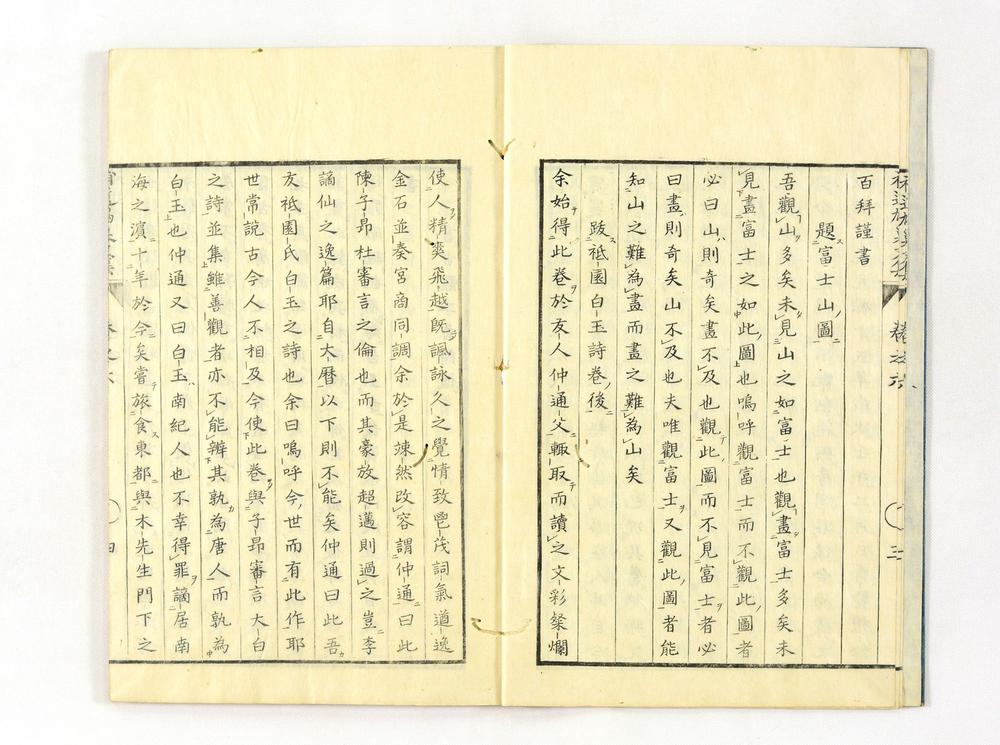 百拜謹書
題富士山圖
吾觀山多矣未見山之如富士也觀畫富士多矣未
見畫富士之如此圖也嗚呼觀富士而不觀此圖者
必曰山則奇矣畫不及也觀此圖而不見富士者必
曰畫則奇矣山不及也夫唯觀富士又觀此圖者能
知山之難為畫而畫之難為山矣
跋祗園白玉詩卷後
余始得此卷於友人仲通父輙取而讀之文彩粲爛
卷之六
三
使人精爽飛越既諷詠久之覺情致鬯茂詞氣遒逸
金石並奏宮商同調余於是竦然改容謂仲通曰此
陳子昂杜審言之倫也而其豪放超邁則過之豈李
謫仙之逸篇耶自大曆以下則不能矣仲通曰此吾
友祗園氏白玉之詩也余曰嗚呼今世而有此作耶
世常說古今人不相及今使此卷與子昂審言大白
之詩並集雖善觀者亦不能辨其孰為唐人而孰為
白玉也仲通又曰白玉南紀人也不幸得罪謫居南
海之濵十年於今矣嘗旅食東都與木先生門下之
卷之六
四